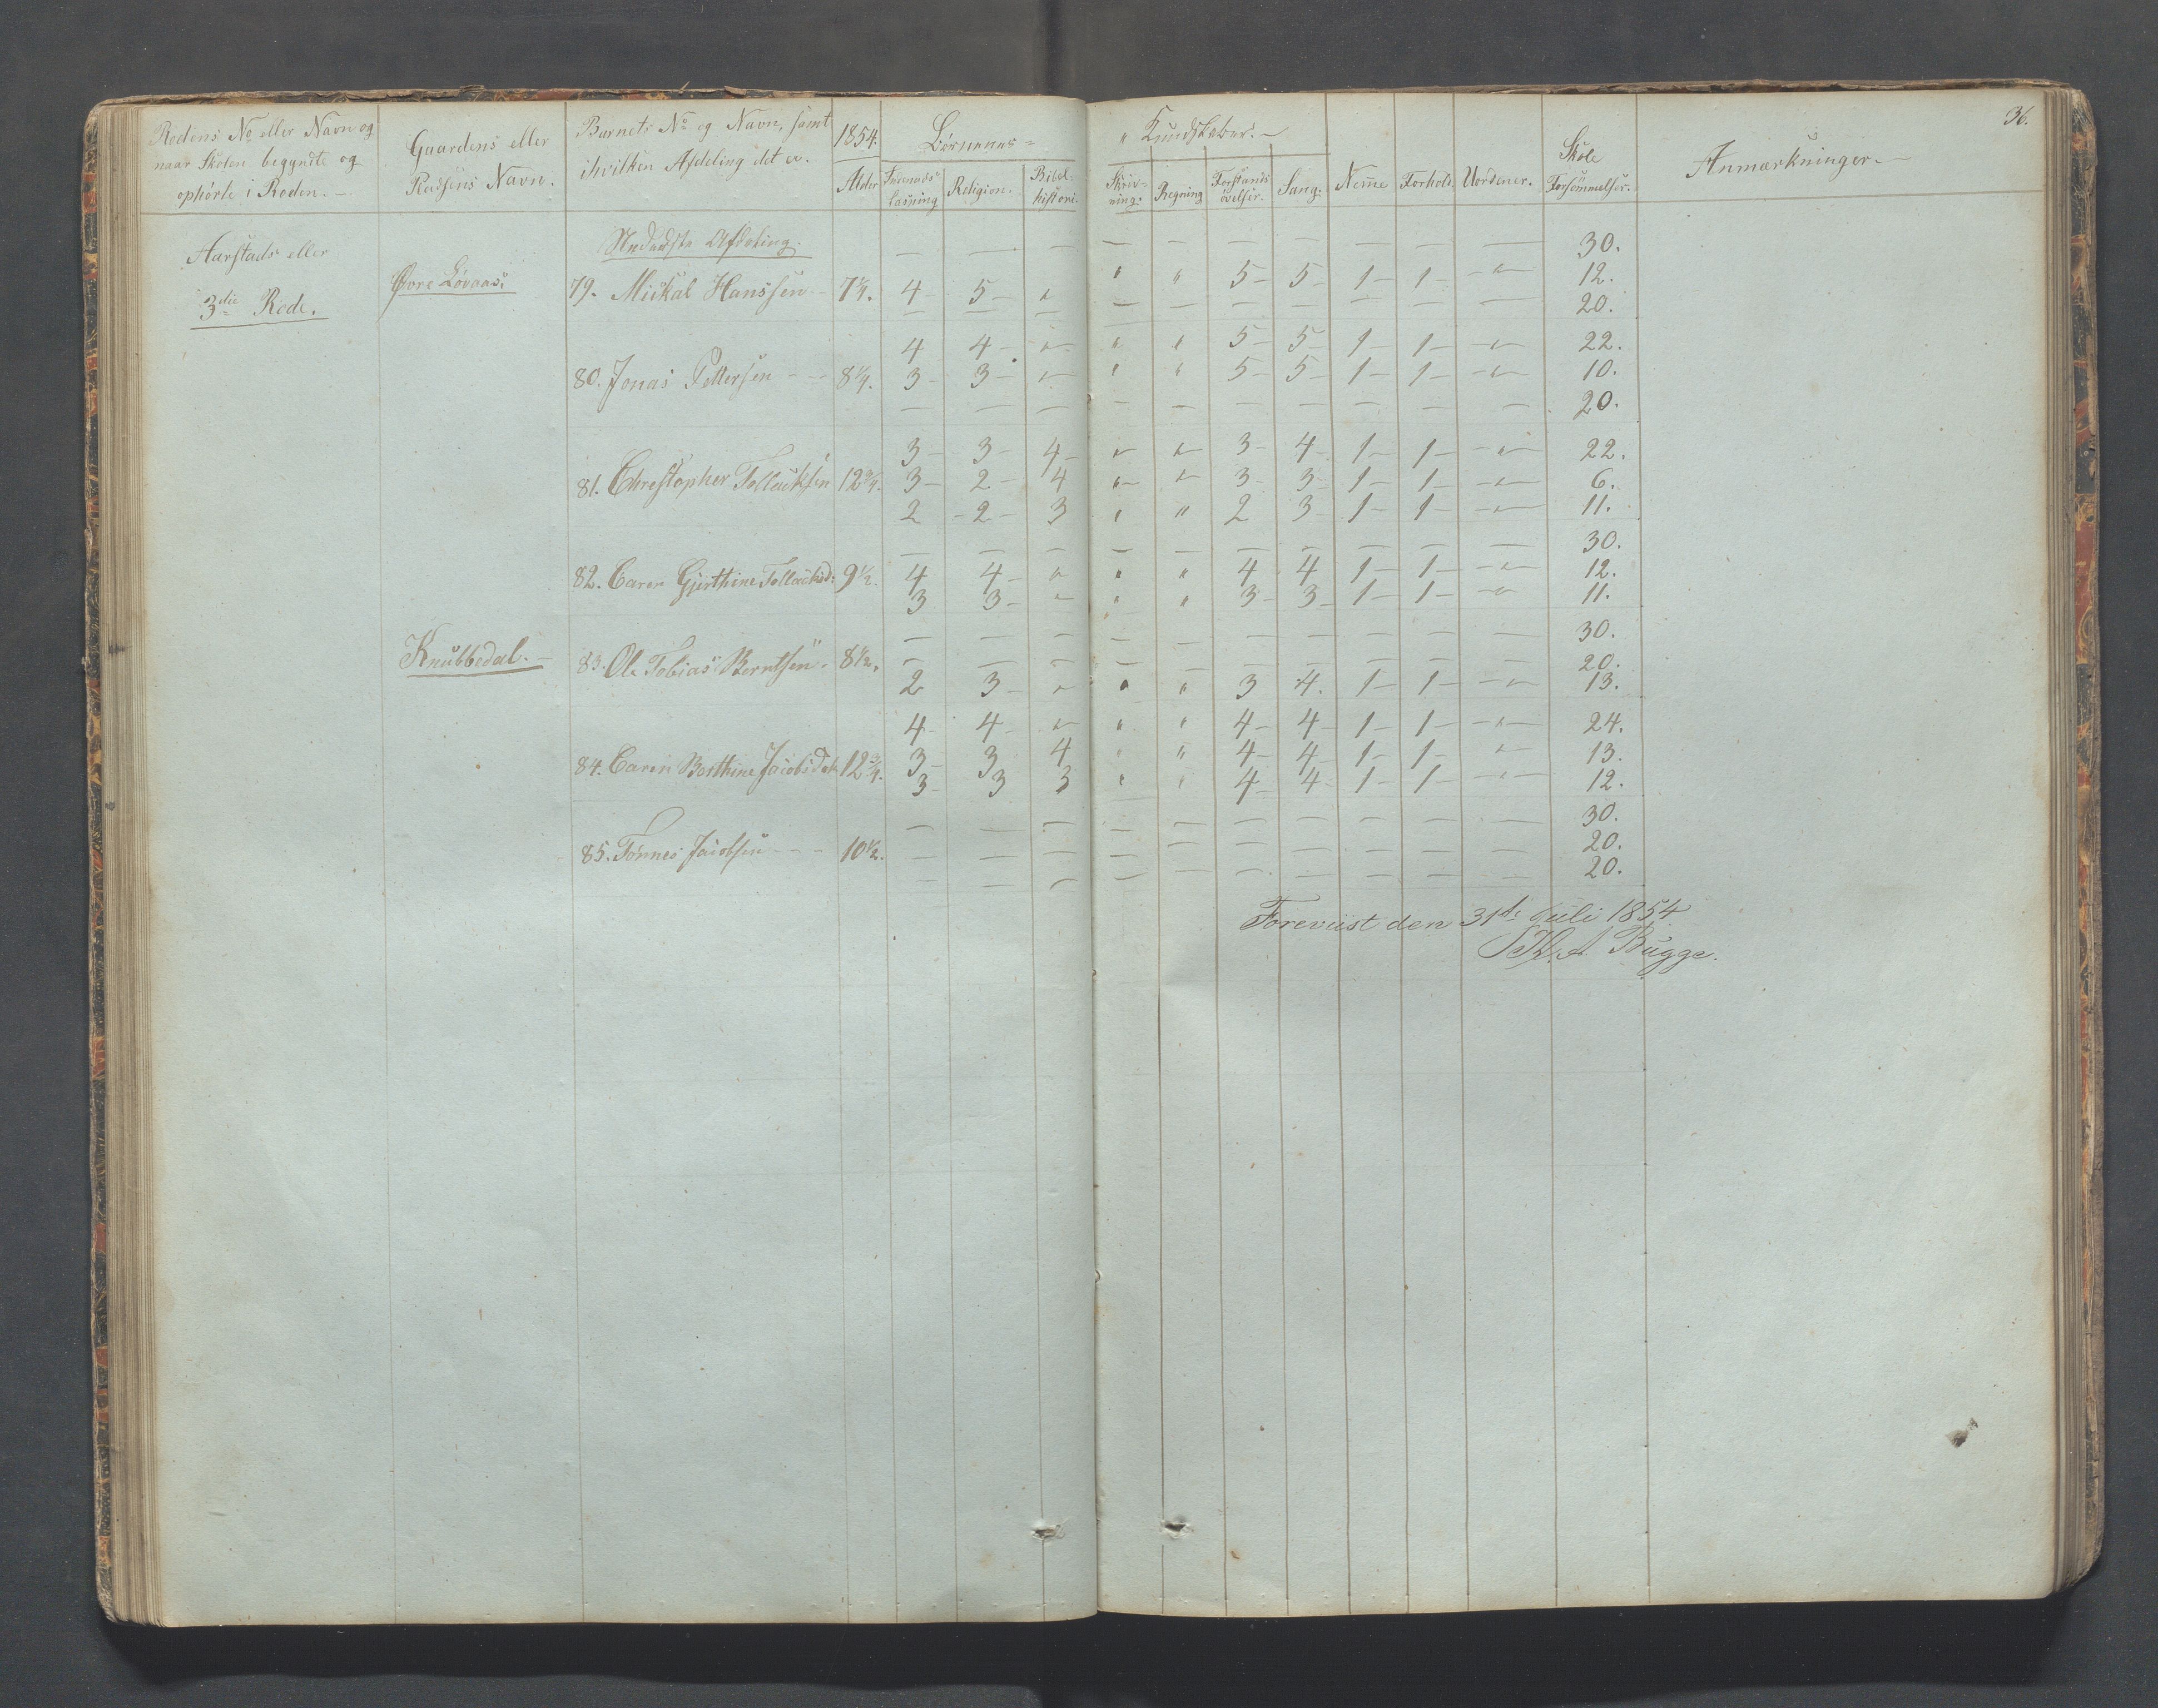 36.
Rodens No eller Navn og naar Skolen begyndte og ophørte i Roden. —
Gaardens eller Pladsens Navn.
Barnets No og Navn, samt i hvilken Afdeling det er.
1854.
Alder
Børnenes =
" Kundskaber. —
Religion.
Bibel-historie
Skriv-ning.
Regning
Forstands øvelser.
Sang.
Nemme
Forhold
Uordener.
Skole Forsømmelser.
Anmærkninger. —
Nederste Afdeling.
— — — — — — — — — — 30.
Aarstads eller
3die Rode.
Øvre Løvaas.
79. Mickal Hanssen — 7¼. 4 — 5 — " " " 5 — 5 — 1 — 1 — — " — 12.
— — — — — — — — — — 20.
4 4 — " — " " 5 — 5 — 1 — 1 — — " — 22.
80. Jonas Pettersen — — 8¼. 3 — 3 — " — " " 5 — 5 — 1 — 1 — — " — 10.
— — — — — — — — — — 20.
3 — 3 — 4 — " " 3 — 4 — 1 — 1 — — " — 22.
81. Christopher Tollacksen 12¾. 3 — 2 — 4 " — " — 3 — 3 — 1 — 1 — — " — 6.
2 — 2 — 3 " " 2 3 — 1 — 1 — — " — 11.
— — — — — — — — — — 30.
82. Caren Gjerthine Tollacksd: 9½. 4 4 — " " " 4 4 1 — 1 — — " — 12.
3 3 — " " " 3 — 3 — 1 — 1 — — " 11.
— — — — — — — — — — 30.
Knubbedal. —
83. Ole Tobias Berntsen. 8½. — — — — — — — — — — 20.
2 3 — " " " 3 4. 1 — 1 — — " — 13.
4 — 4 — " — " " 4 — 4 — 1 — 1 — — " — 24.
84. Caren Berthine Jacobsdat 12¾. 3 — 3 4 " " 4 — 4 — 1 — 1 — " — 13.
3 — 3 3 " " 4 — 4 — 1 — 1 — — " — 12.
— — — — — — — — — — 30.
85. Tønnes Jacobsen — — — 10½. — — — — — — — — — — 20.
— — — — — — — — — — 20.
Foreviist den 31te Juli 1854
Bugge.